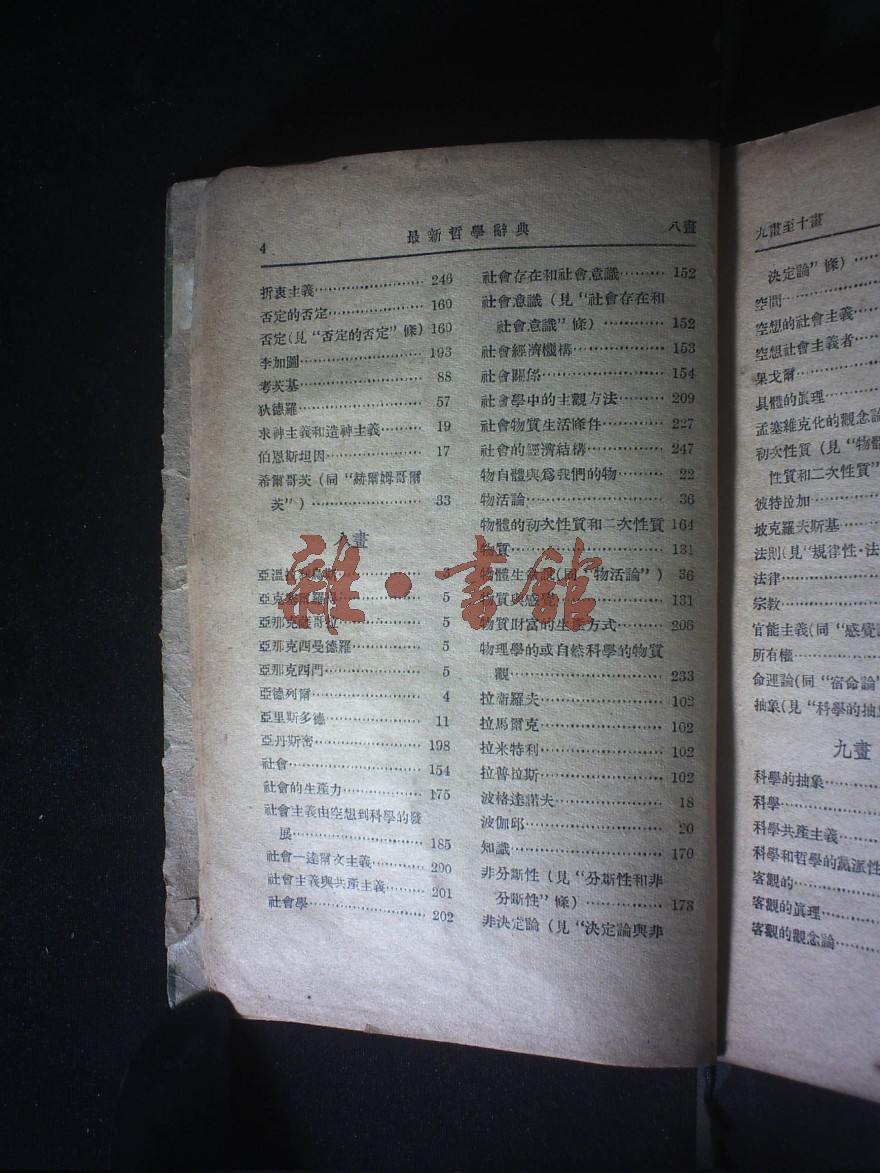 4
最新哲學辭典
八畫
折衷主義………………… 246
否定的否定……………… 160
否定(見“否定的否定”條) 160
李加圖…………………… 193
考茨基…………………… 88
狄德羅…………………… 57
求神主義和造神主義…… 19
伯恩斯坦因……………… 17
希爾哥茨(同“赫爾姆哥爾
茨”)………………… 33
八畫
亞克塞 5
亞那克薩哥拉 5
亞那克西曼德羅………… 5
亞那克西門……………… 5
亞德列爾………………… 4
亞里斯多德……………… 11
亞丹斯密………………… 198
社會……………………… 154
社會的生產力…………… 175
社會主義由空想到科學的發
展……………………… 185
社會—達爾文主義……… 200
社會主義與共產主義…… 201
社會學…………………… 202
社會存在和社會意識……… 152
社會意識(見“社會存在和
社會意識”條)………… 152
社會經濟機構…………… 153
社會關係………………… 154
社會學中的主觀方法…… 209
社會物質生活條件……… 227
社會的經濟結構………… 247
物自體與爲我們的物…… 22
物活論…………………… 36
物體的初次性質和二次性質 164
物質……………………… 131
物體生 說(同“物活論”) 36
物質與感覺……………… 131
物質財富的生產方式…… 206
物理學的或自然科學的物質
觀……………………… 233
拉衞羅夫………………… 102
拉馬爾克………………… 102
拉米特利………………… 102
拉普拉斯………………… 102
波格達諾夫……………… 18
波伽邱…………………… 20
知識……………………… 170
非分斷性(見“分斷性和非
分斷性”條)…………… 173
非決定論(見“決定論與非
九畫至十畫
決定論”條)……
空間………
空想的社會主義……
空想社會主義者……
果戈爾………
具體的眞理………
孟塞維克化的觀念論
初次性質(見“物體
性質和二次性質”
彼特拉加………
坡克羅夫斯基……
法則(見“規律性·法
法律………
宗教………
官能主義(同“感覺論
所有權………
命運論(同“宿命論”
抽象(見“科學的抽象
九畫
科學的抽象………
科學………
科學共產主義……
科學和哲學的黨派性
客觀的………
客觀的眞理………
客觀的觀念論……
雜·書館